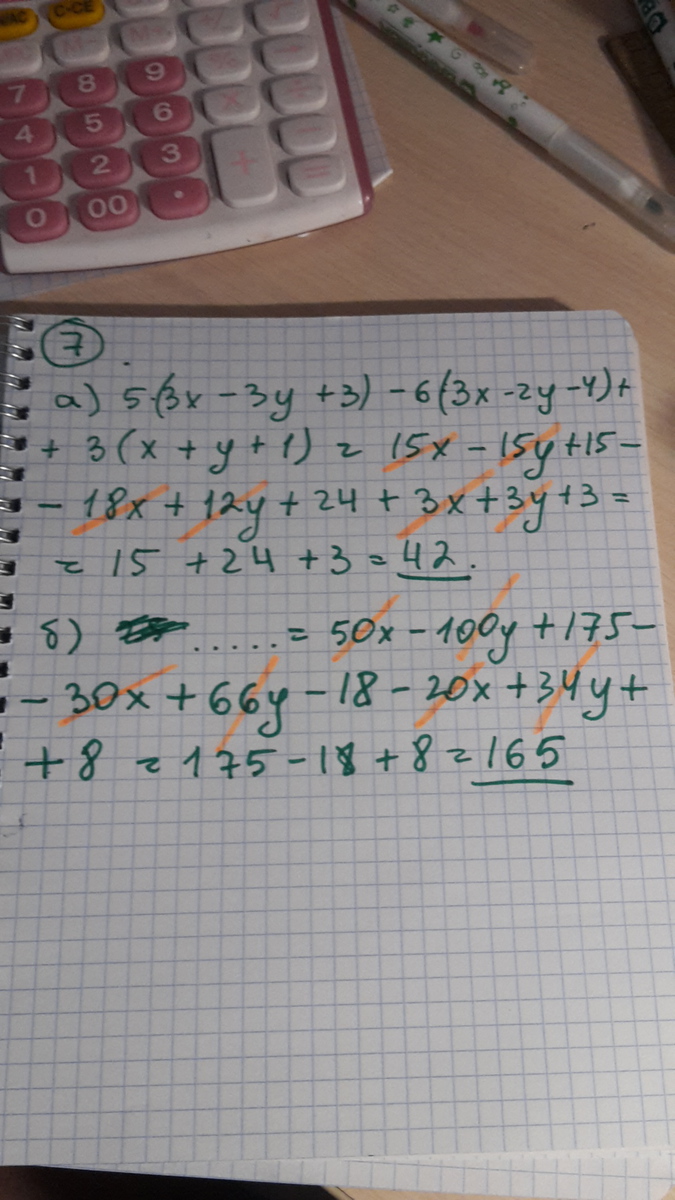 C-CE
7 8 9
4 5 6
1 2 3 +
0 00 · =
7
а) 5·(3x - 3y + 3) - 6(3x - 2y - 4) +
+ 3(x + y + 1) = 15x - 15y + 15 -
- 18x + 12y + 24 + 3x + 3y + 3 =
= 15 + 24 + 3 = 42.
б) ...... = 50x - 100y + 175 -
- 30x + 66y - 18 - 20x + 34y +
+ 8 = 175 - 18 + 8 = 165